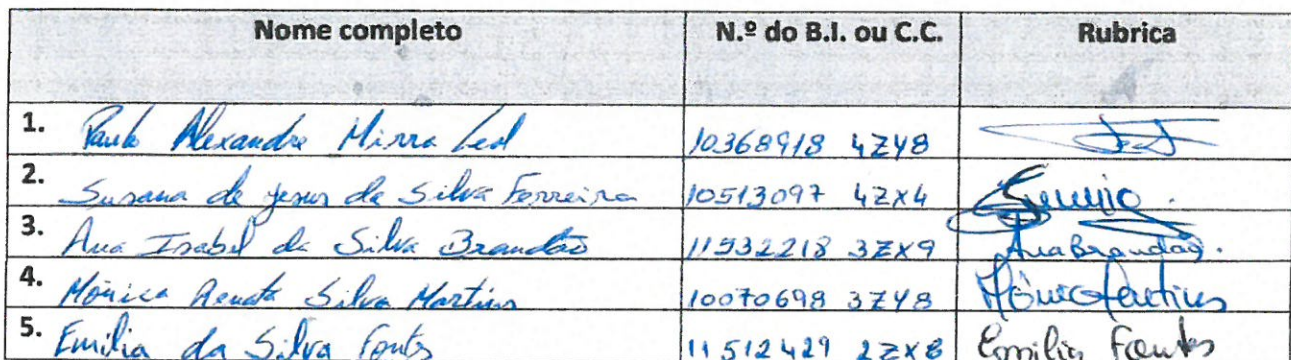 Nome completo N.º do B.I. ou C.C. Rubrica
1. Paulo Alexandre Mirra Leal 10368918 4ZY8
2. Susana de Jesus da Silva Ferreira 10513097 4ZX4
3. Ana Isabel da Silva Brandão 11932218 3ZX9 Ana Brandão.
4. Mónica Renata Silva Martins 10070698 3ZY8 Mónica Martins
5. Emília da Silva Fontes 11512429 2ZX8 Emília Fontes